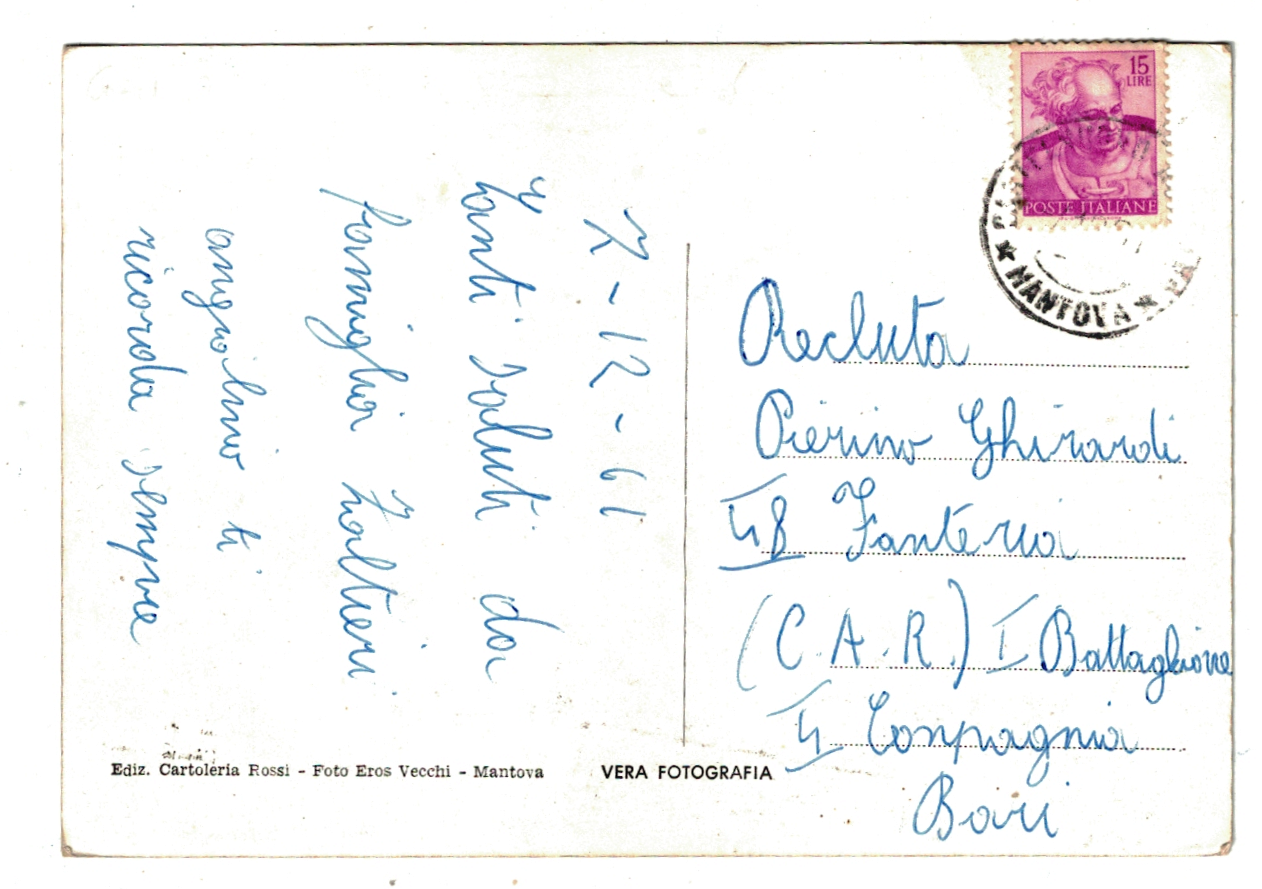 15
LIRE
POSTE ITALIANE
★ MANTOVA ★
7 - 12 - 61
Tanti saluti da
famiglia Zaltieri
angiolino ti
ricorda sempre
Recluta
Pierino Ghirardi
48 Fanteria
(C.A.R.) I Battaglione
4 Conpagnia
Bari
Ediz. Cartoleria Rossi - Foto Eros Vecchi - Mantova
VERA FOTOGRAFIA